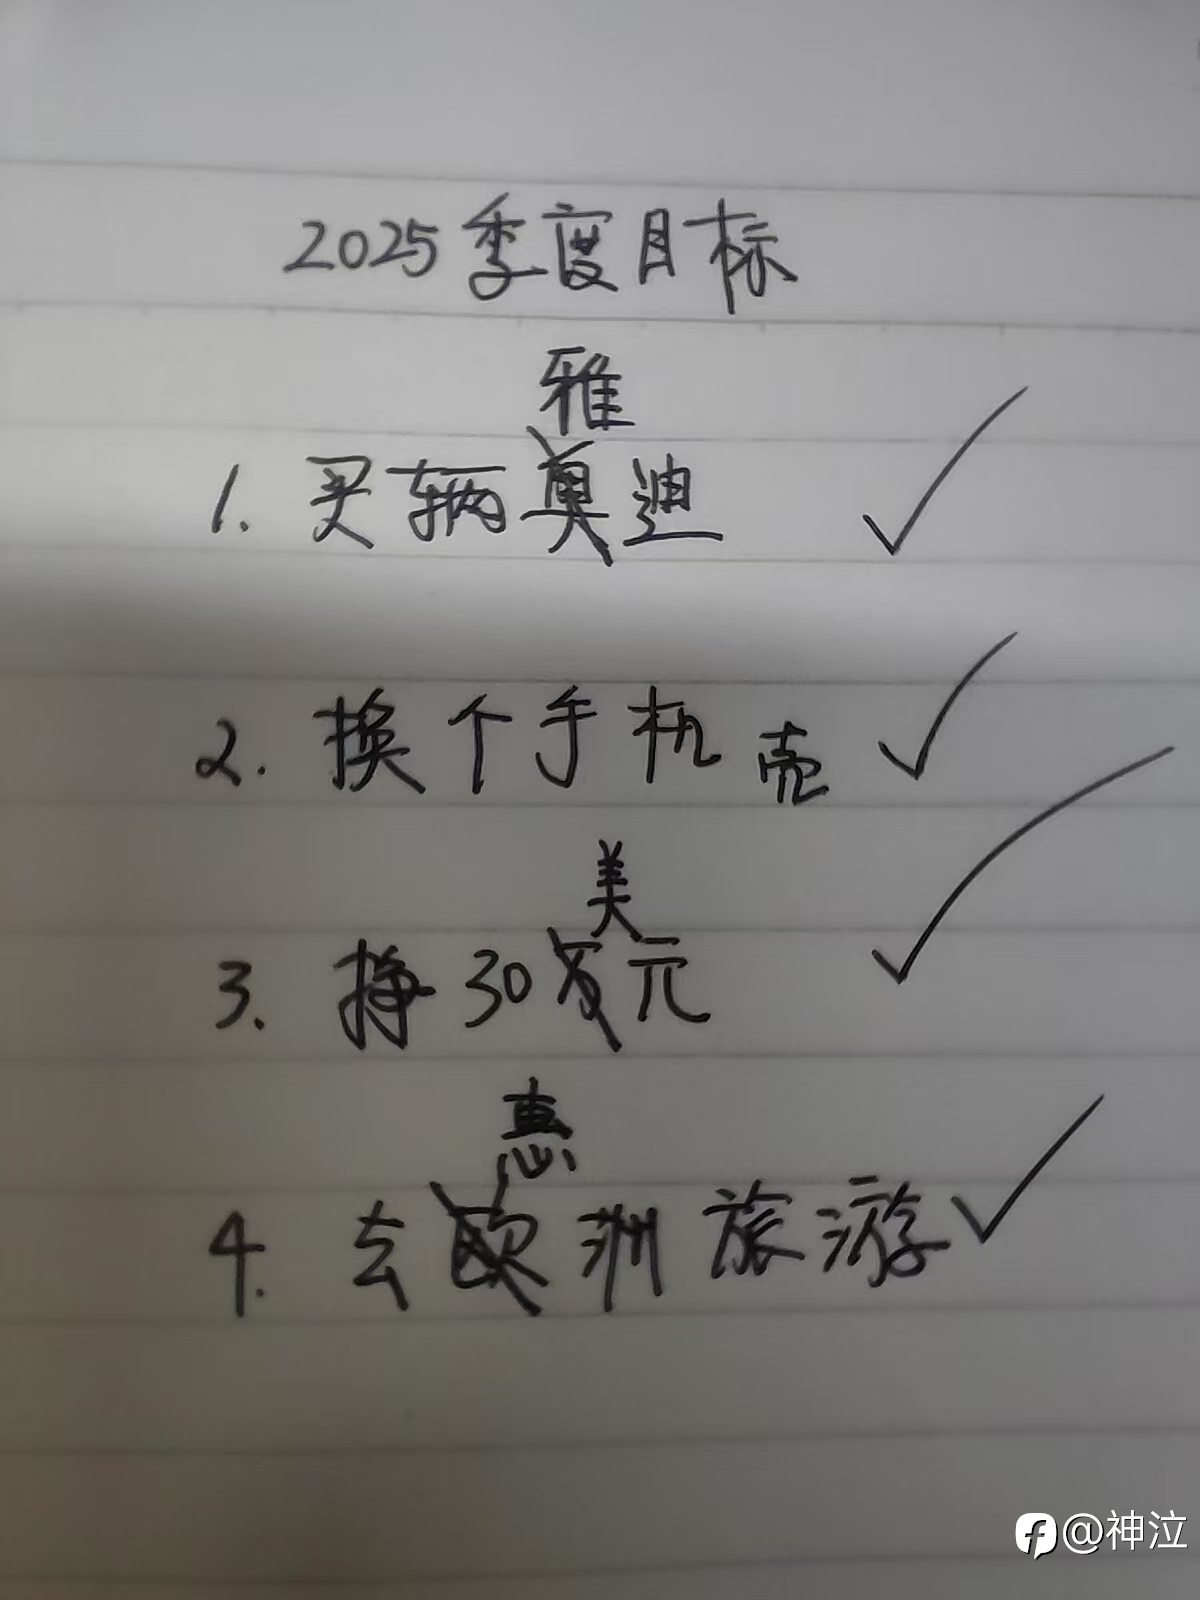 2025季度目标
雅
1. 买辆奥迪
2. 换个手机壳
美
3. 挣30万元
惠
4. 去欧洲旅游
@神泣